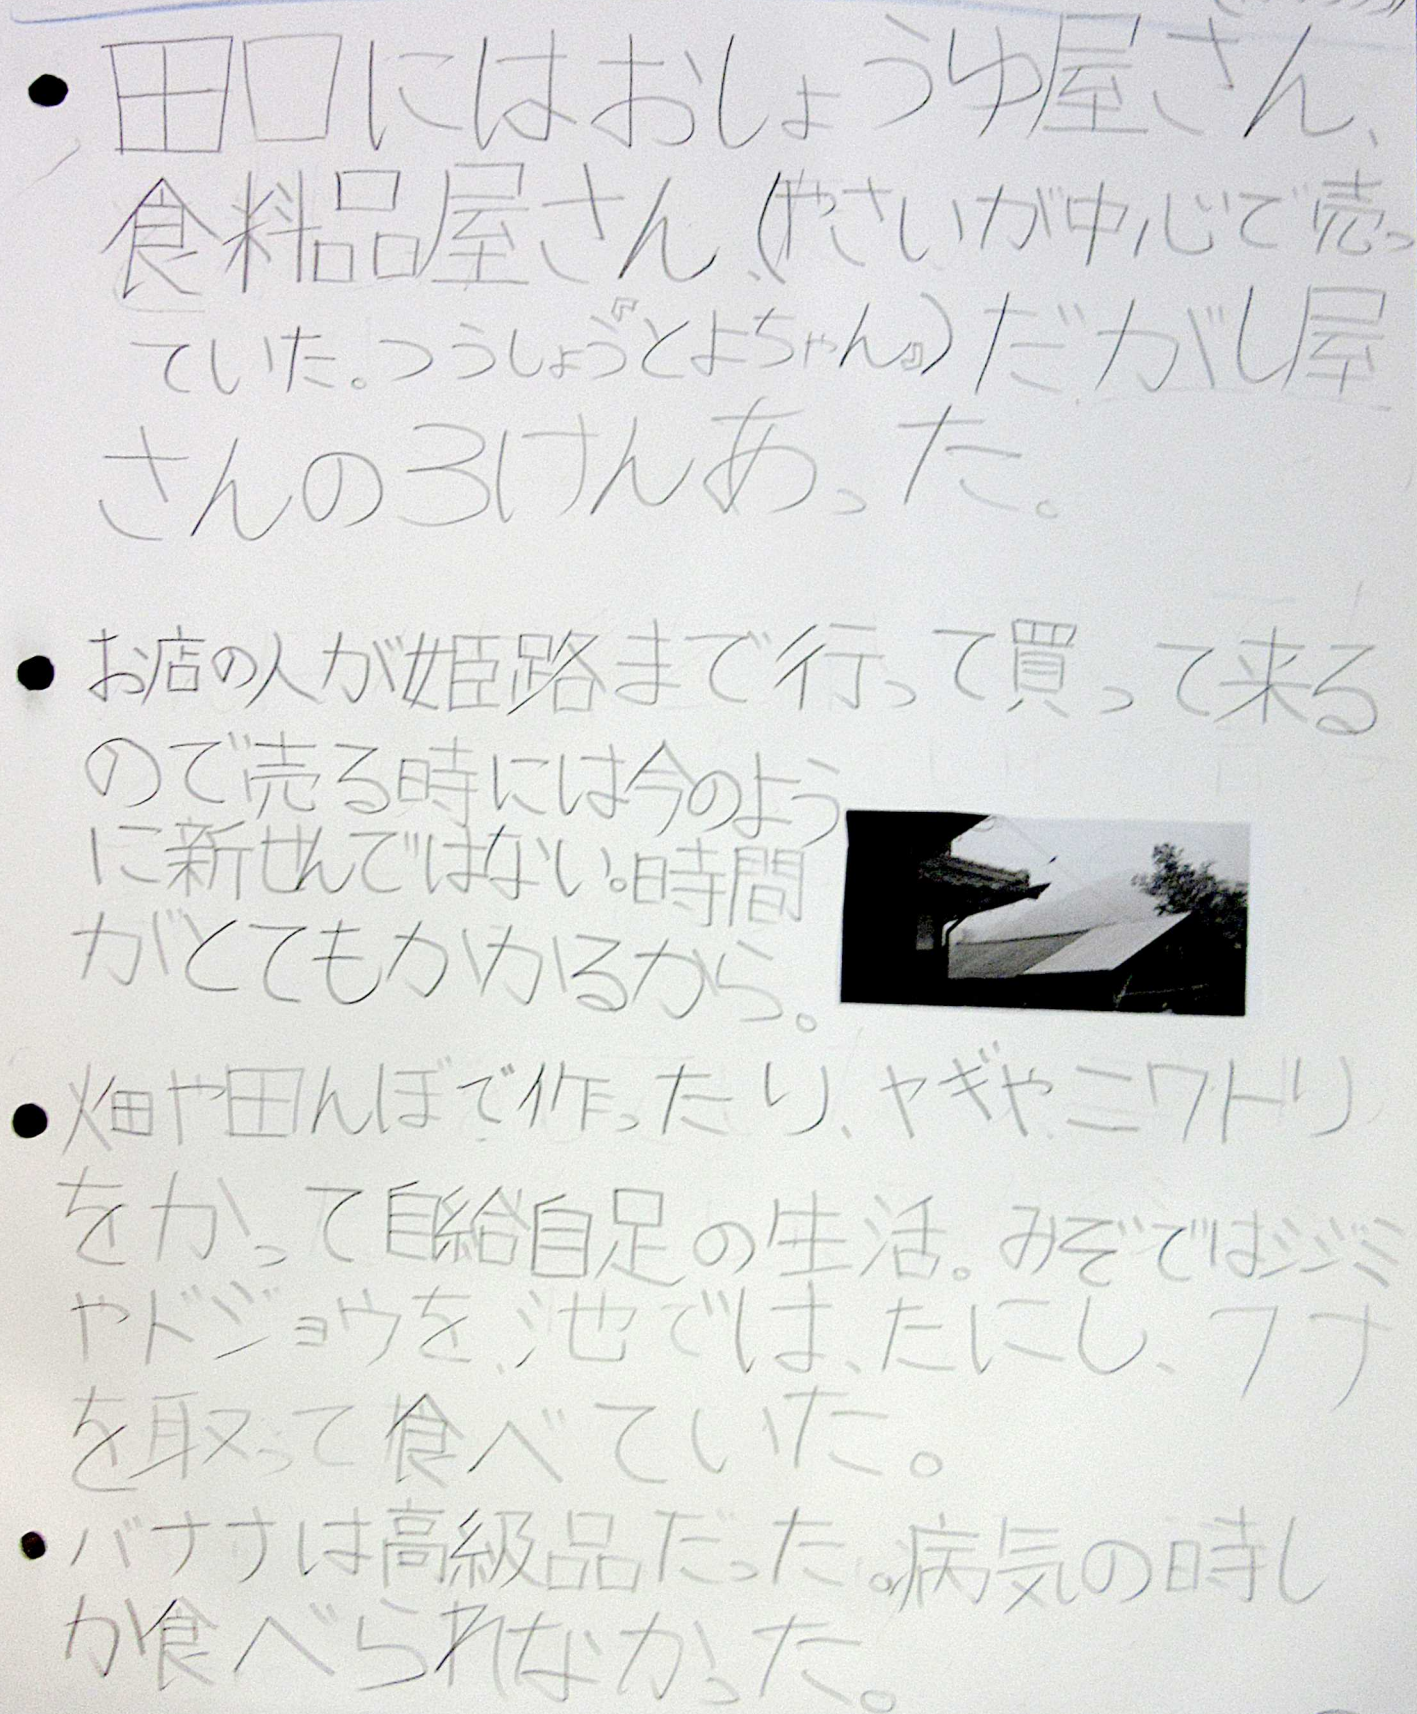 ・田口にはおしょうゆ屋さん、
食料品屋さん、(やさいが中心で売っ
ていた。つうしょう『とよちゃん』)だがし屋
さんの3けんあった。
・お店の人が姫路まで行って買って来る
ので売る時には今のよう
に新せんではない。時間
がとてもかかるから。
・畑や田んぼで作ったり、ヤギやニワトリ
をかって自給自足の生活。みぞではシジミ
やドジョウを、池では、たにし、フナ
を取って食べていた。
・バナナは高級品だった。病気の時し
か食べられなかった。